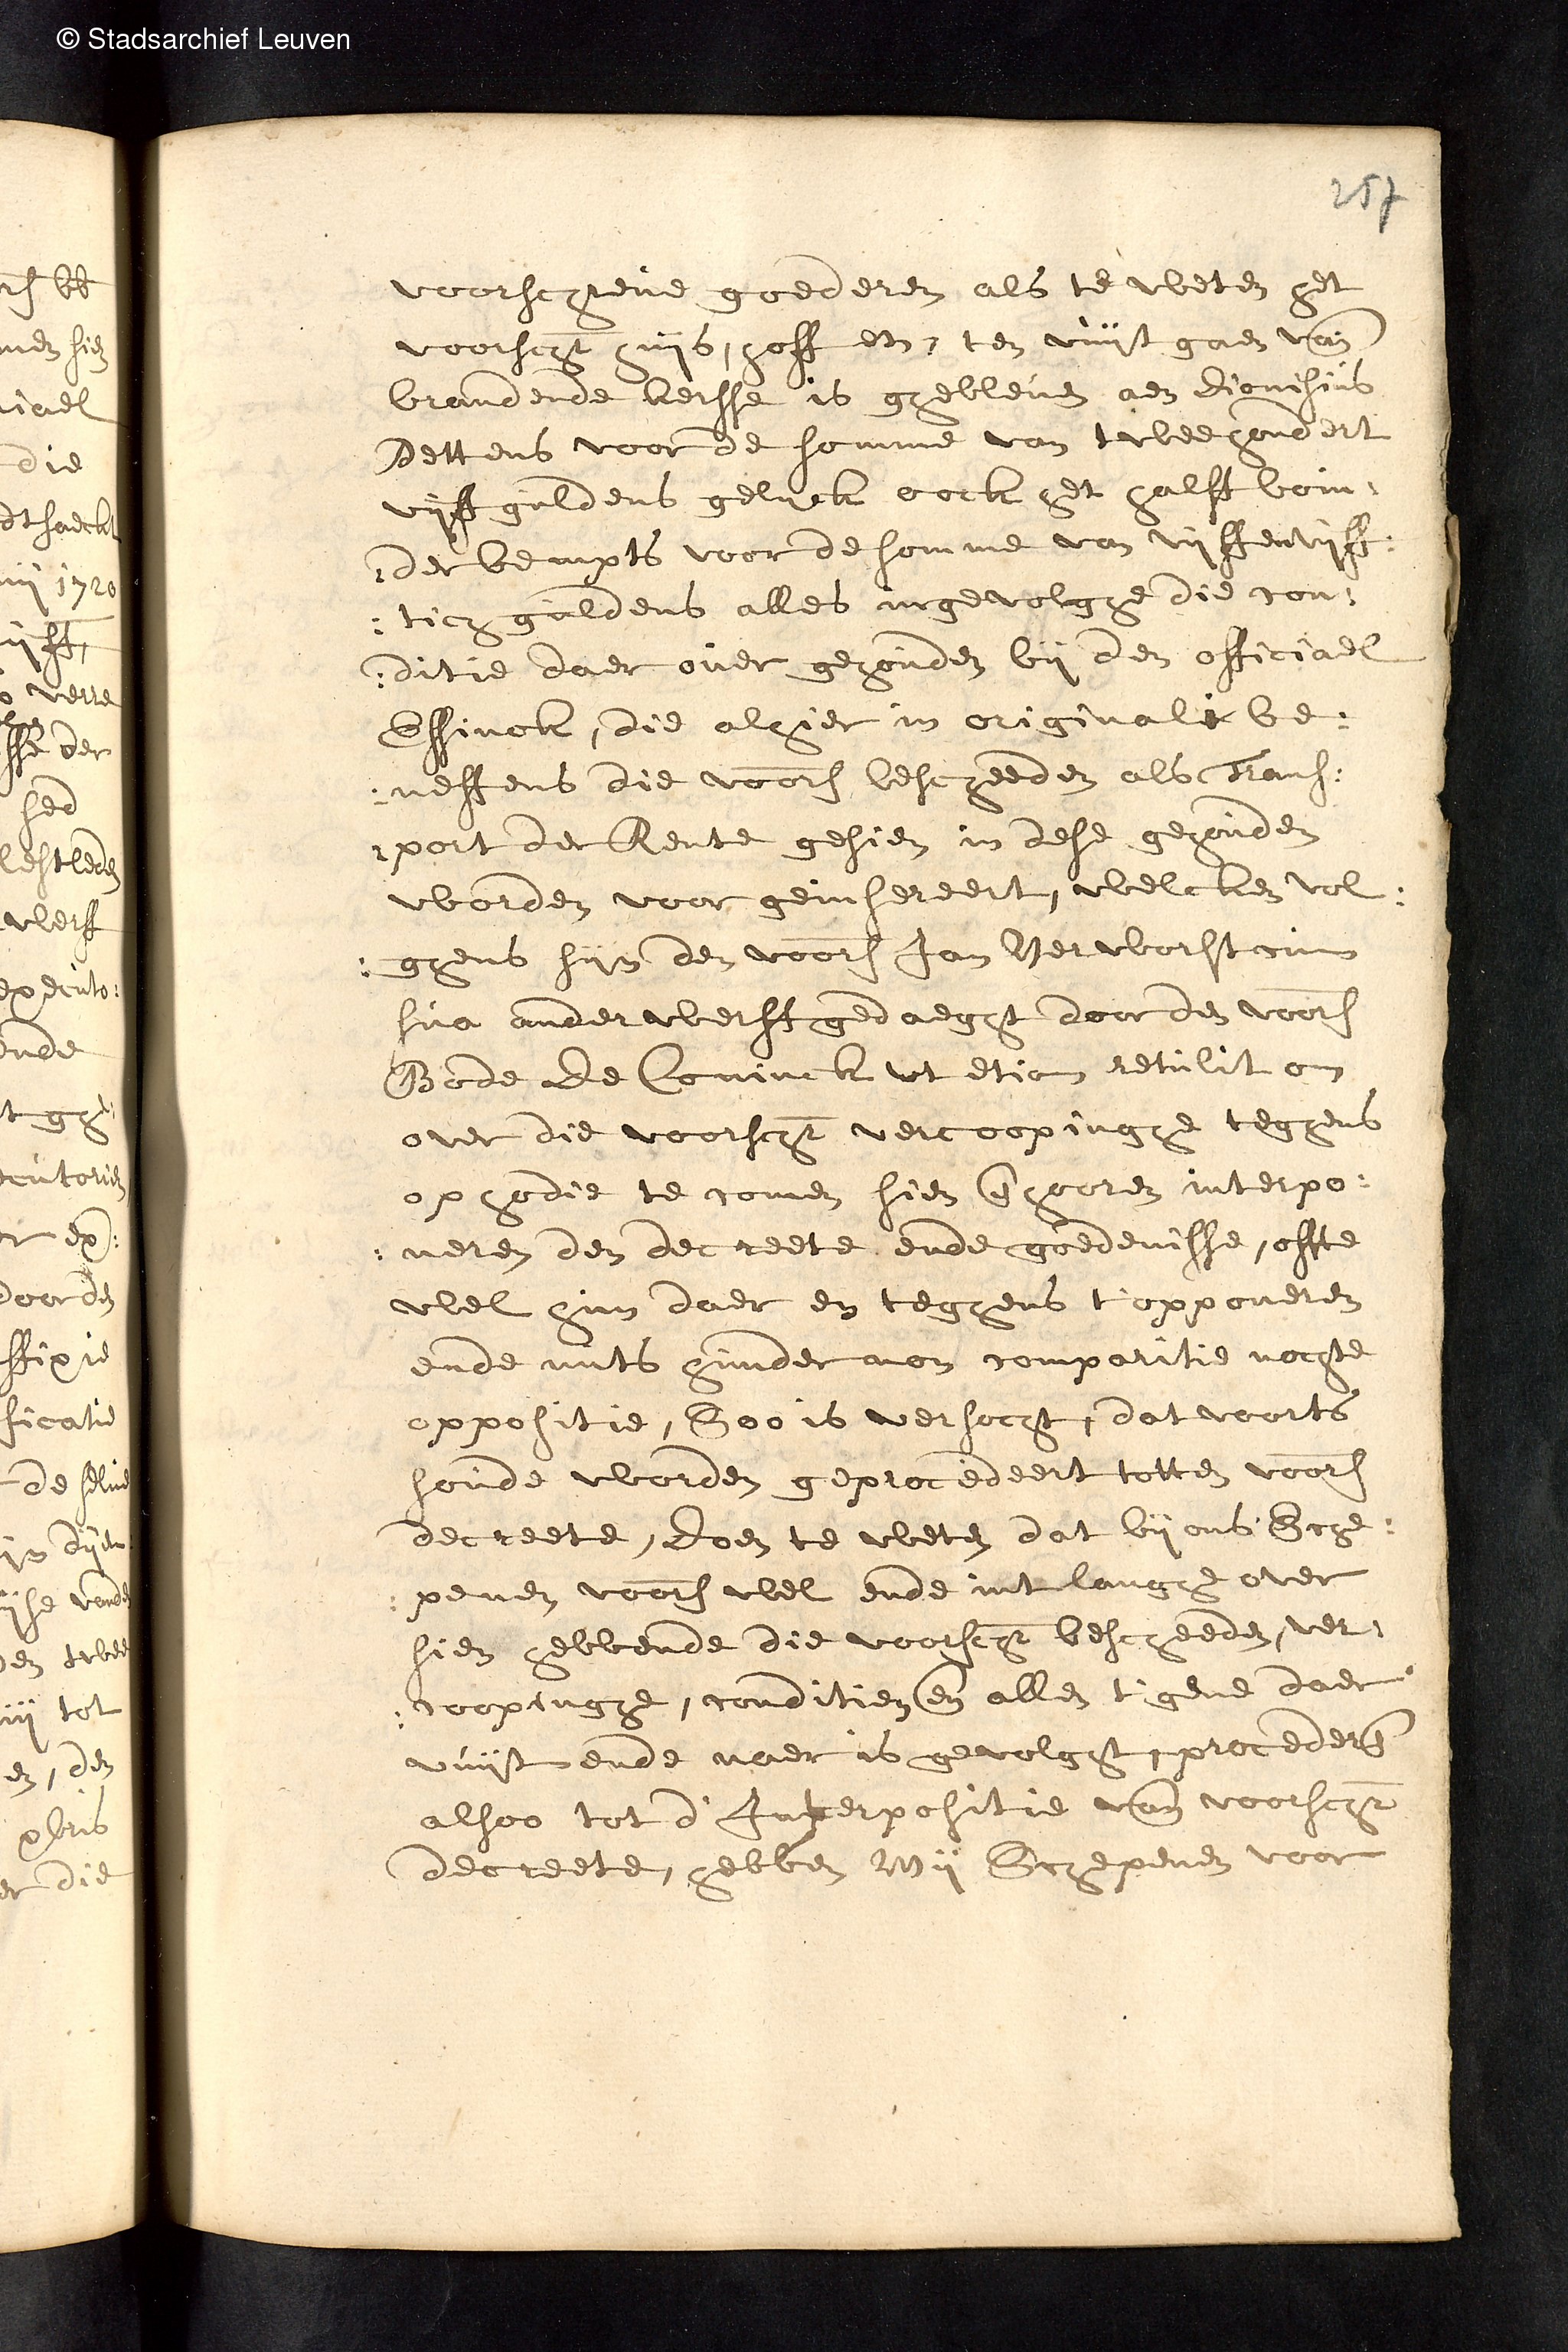 © Stadsarchief Leuven
257
voorschreve goederen als te weten het
voorschr huijs, hoff etc, ten vuijt gaen van
brandende kersse is ghebleven aen Dionisius
Dettens voor de somme van tweehondert
vijff guldens gelyck oock het halfft boin:
:der bempts voor de somme van vijffenvijff:
:tich guldens alles ingevolghe die con:
:ditie daer over gehouden bij den officiael
Essinck, die alhier in originali be:
:neffens die voors bescheeden als Trans:
:port der Rente gesien in dese gehouden
worden voor geinsereert, welcken vol:
:ghens sijn den voors Jan Verworst cum
sua anderwerff gedaeght door den voors
Bode De Coninck ut etiam retulit om
over die voorschr vercoopinghe teghens
op hodie te comen sien en hooren interpo:
:neren den decreete ende goedenisse, offte
wel hun daer en teghens t'opponeren
ende mits hunder non comparitie nochte
oppositie, Soo is versocht, dat voorts
soude worden geprocedeert totten voors
decreete, Doen te weten dat bij ons Sche:
:penen voors wel ende int langhe over
sien hebbende die voorschr bescheeden, ver:
:coopinghe, conditien en allen t'gene daer
vuijt ende naer is gevolght, procederen
alsoo tot d'Interpositie van voorschr
decreete, hebben Wij Schepenen voor